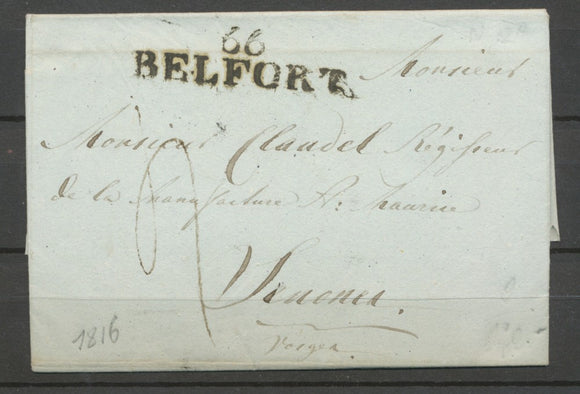 66
BELFORT
Monsieur
Monsieur Claudel Régisseur
de la Manufacture St. Maurice
Senones.
Vosges
1816